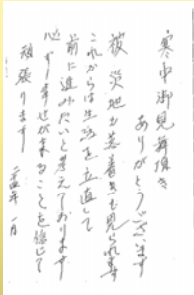 寒中御見舞頂き
ありがとうございます
被災地も落着きも見られます
これからは生活を立直して
前に進みたいと考えております
必ず幸せが来ることを信じて
頑張ります
一月